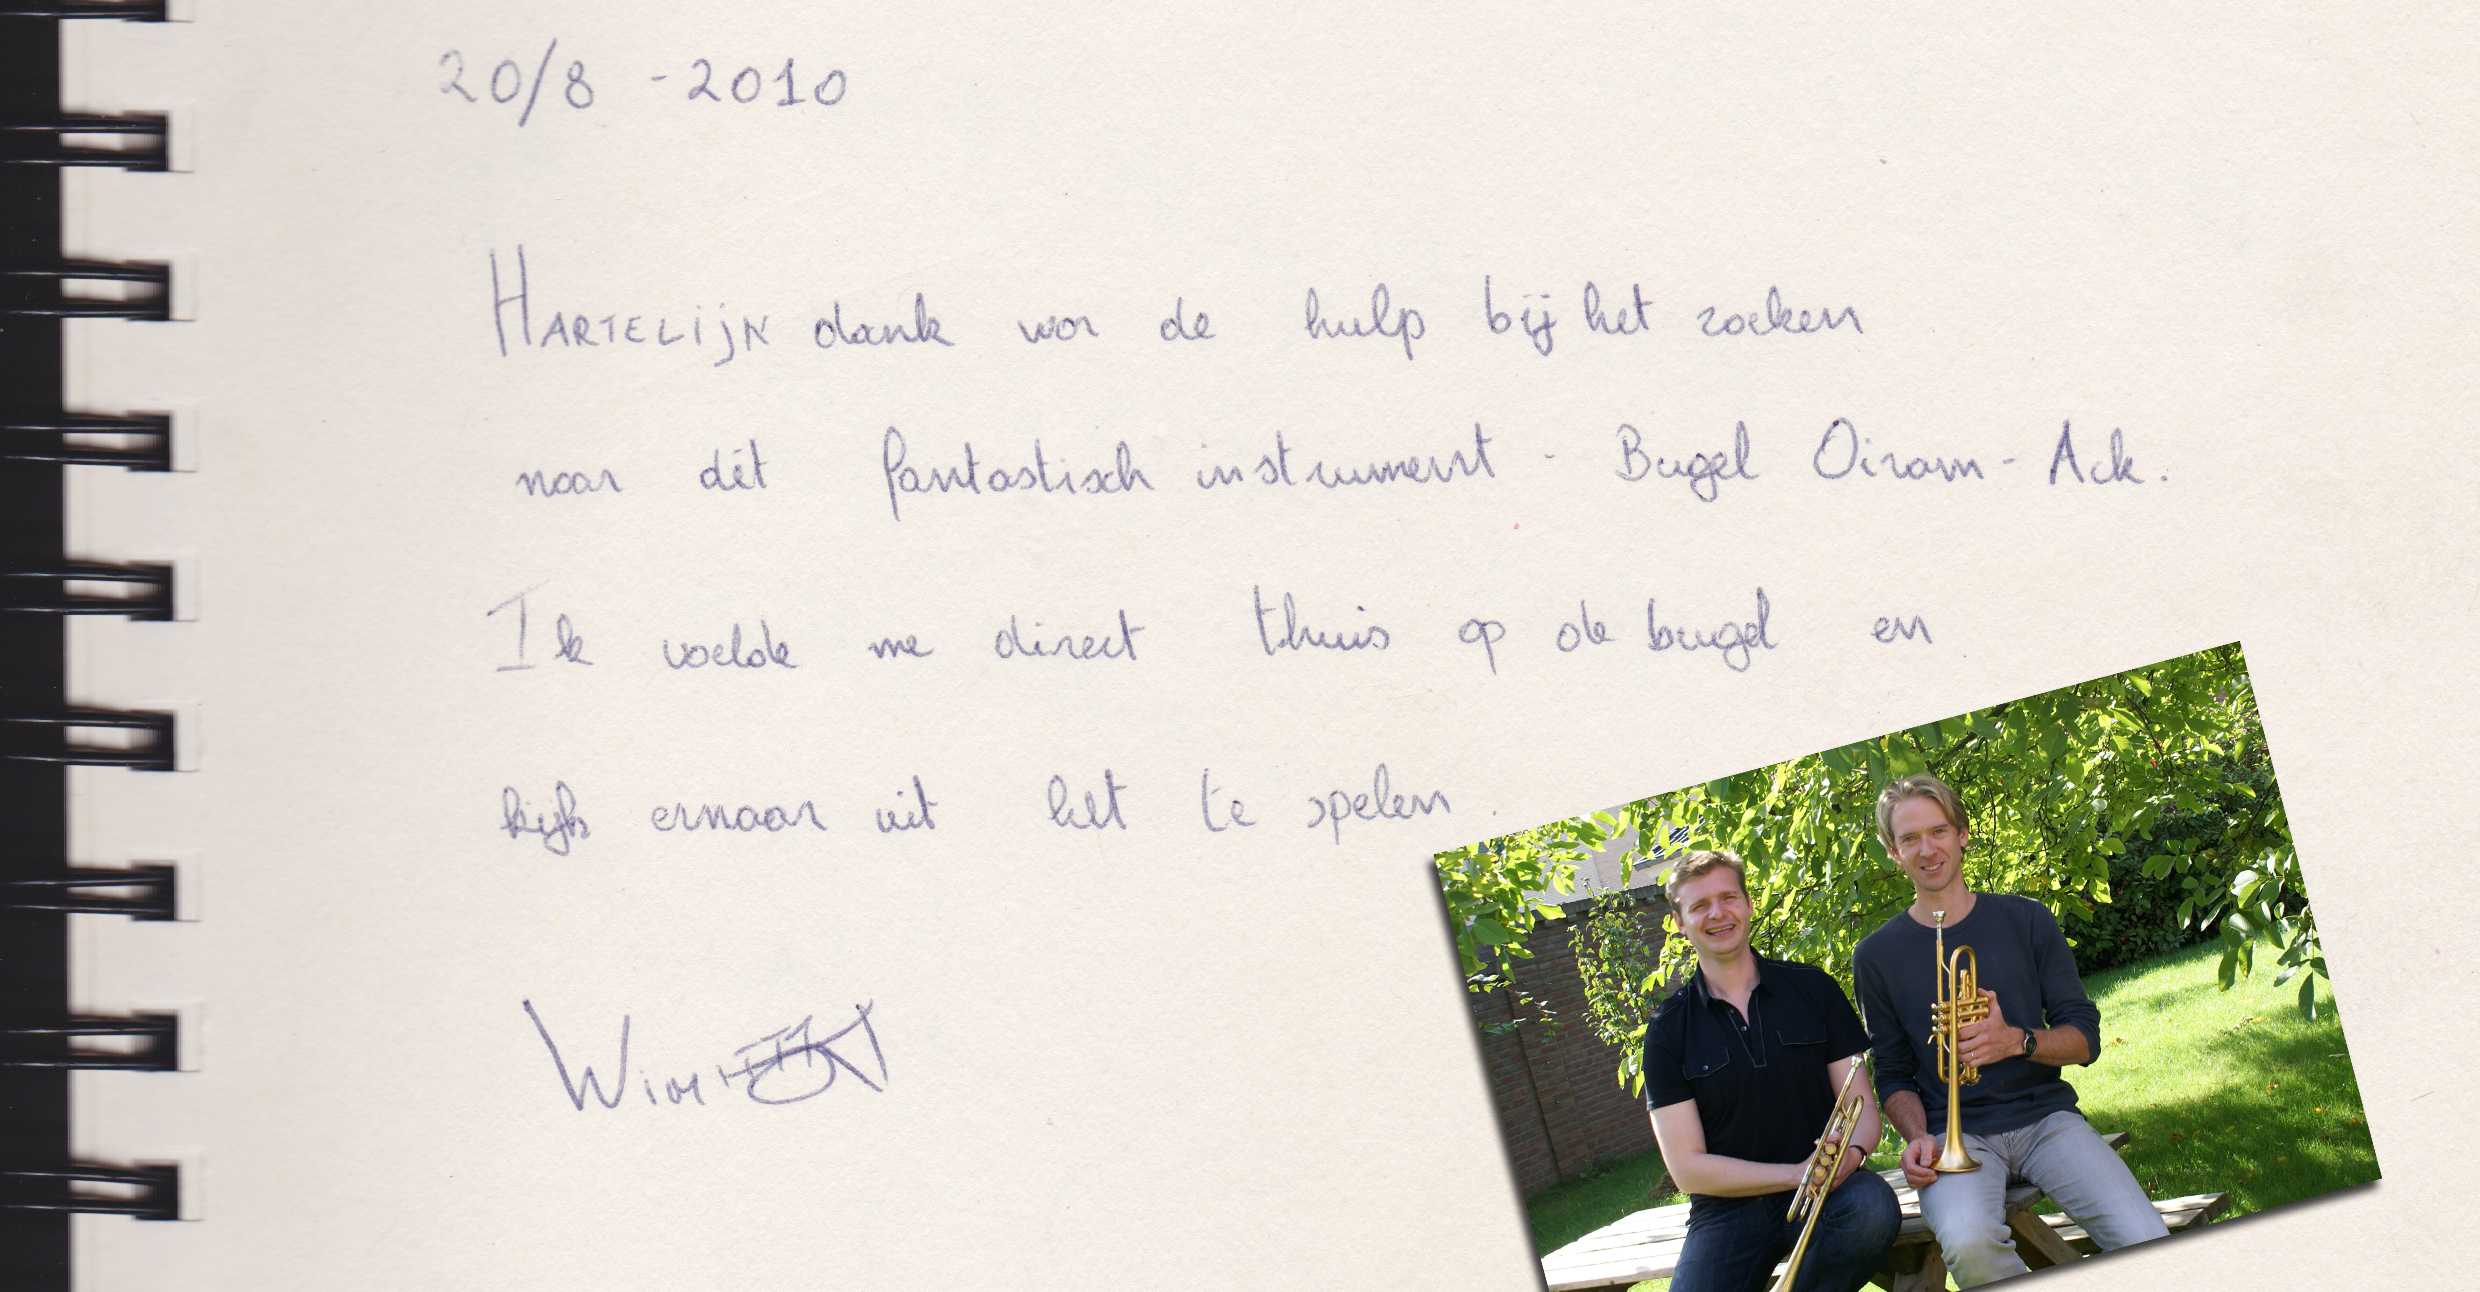 20/8 - 2010
HARTELIJK dank voor de hulp bij het zoeken
naar dét fantastisch instrument - Bugel Oiram - Ack.
Ik voelde me direct thuis op de bugel en
kijk ernaar uit het te spelen.
Wim